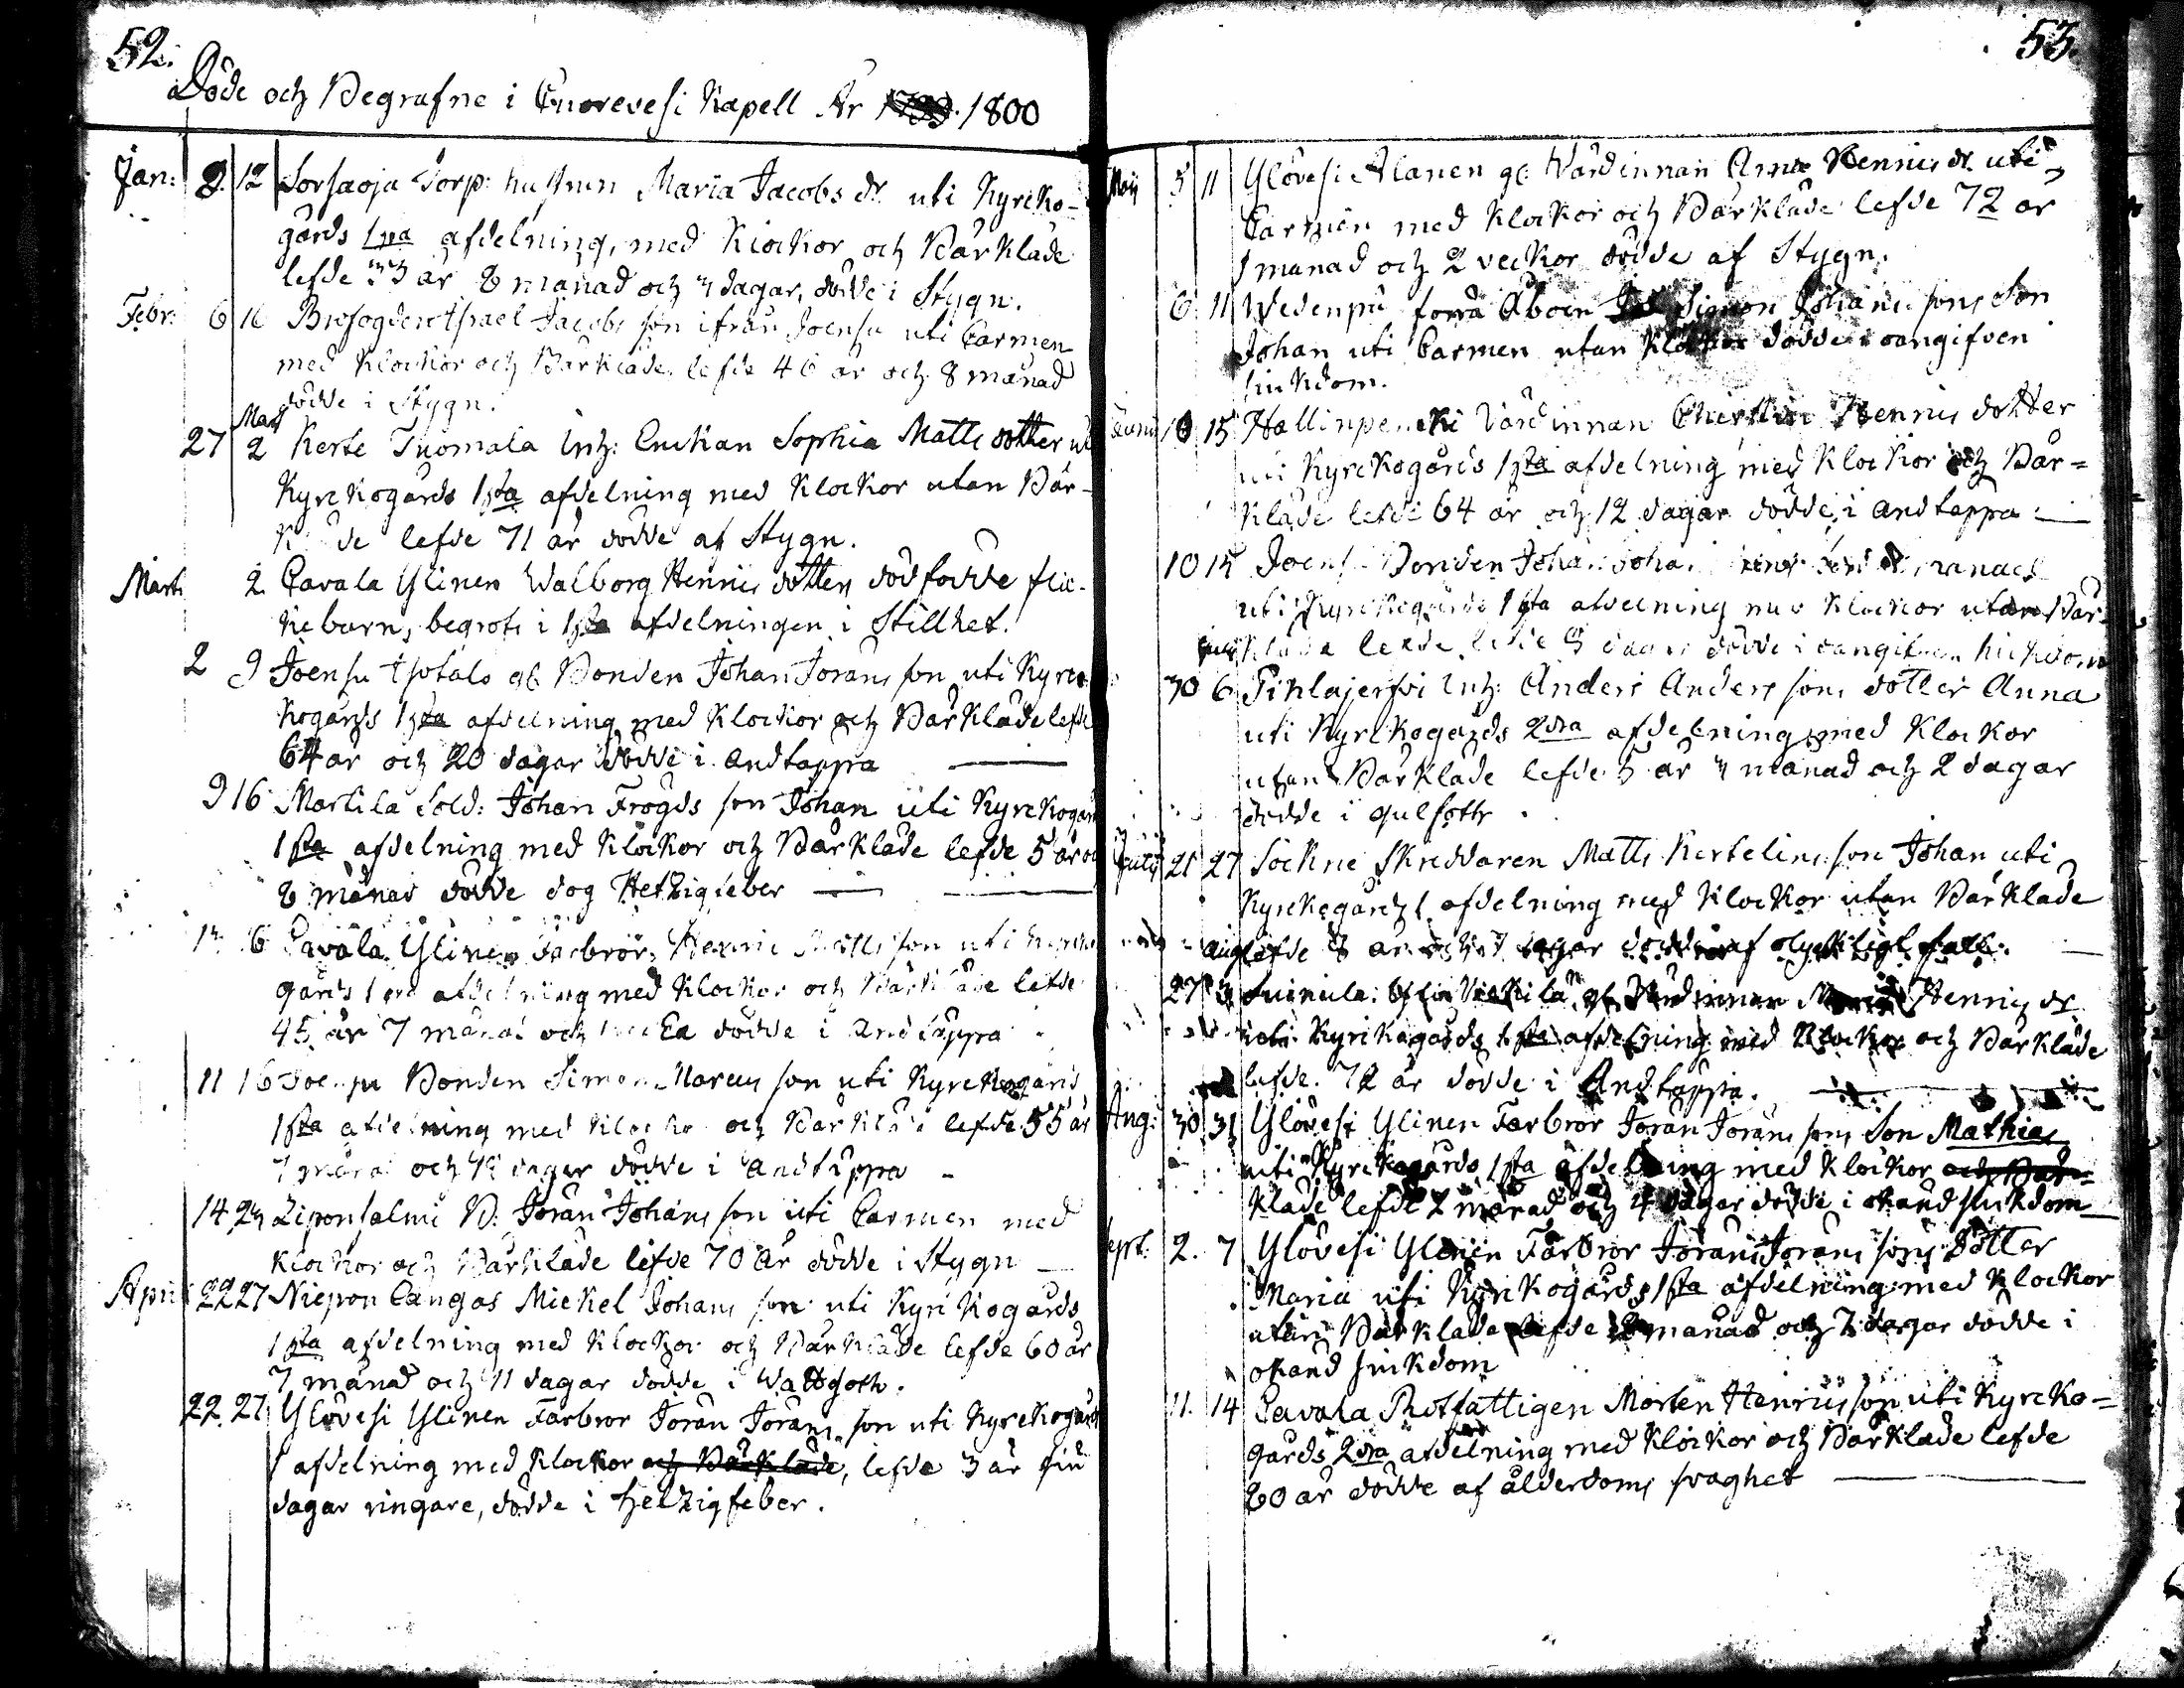 52.
Döde och Begrafne i Cuorevesi Kapell År 1799. 1800
Jan: 8. 12 Sorsaoja Torp: hustrun Maria Jacobs dr uti Kyrcko-
gårds 1sta afdelning, med Klockor och Bårkläde
lefde 33 år 8 månad och 4 dagar, dödde i Stygn.
Febr: 6 16 Israel Jacobs son ifrån Joensu uti Carmen
med Klockor och Bårkläde lefde 46 år och 8 månad
dödde i Stygn.
27 Mart 2 Kerte Tuomala Inh: Enckan Sophia Matts dotter uti
Kyrckogårds 1sta afdelning med Klockor utan Bår-
kläde lefde 71 år dödde af Stygn.
Mart: 2 Pavala Ylinen Walborg Hennrics dotter dödfödde flic-
kebarn, begrofs i 1sta afdelningen i Stillhet.
2 9 Joensu Isotalo gl: Bonden Johan Jörans son uti Kyrc-
kogårds 1sta afdelning med Klockor och Bårkläde lefde
64 år och 20 dagar dödde i andtäppa
9 16 Martila Sold: Johan Frogds son Johan uti Kyrckogårds
1sta afdelning med Klockor och Bårkläde lefde 5 år och
8 månad dödde dog Hetzigfeber
16 Pavala Ylinen Farbror Henric Matts son uti Kyrcko
gårds 1sta afdelning med Klockor och Bårkläde lefde
45 år 7 månad och 1 vecka dödde i andtäppa
11 16 Joensu Bonden Simon Marcus son uti Kyrckogårds
1sta afdelning med Klockor och Bårkläde lefde 55 år
7 månad och dagar dödde i andtäppa
14 24 Liponsalmi B: Jöran Johans son uti Carmen med
Klockor och Bårkläde lefde 70 år dödde i Stygn
April 22 27 Niepon Cangas Mickel Johans son uti Kyrckogårds
1sta afdelning med Klockor och Bårkläde lefde 60 år
7 månad och 11 dagar dödde i Wattsoth.
22. 27 Ylövesi Ylinen Farbror Jöran Jörans son uti Kyrckogårds
1 afdelning med Klockor och Bårkläde, lefde 3 år
dagar ringare, dödde i Hetzigfeber.
53.
Maij 5 11 Ylövesi Alanen gl: Värdinnan Anna Hennrics dr uti
Carmen med Klockor och Bårkläde lefde 72 år
1 månad och 2 veckor dödde af Stygn.
6 11 Wedenpä förra Åboen Simon Johans sons Son
Johan uti Carmen utan Klockor dödde i oangifven
siukdom.
Junii 10 15 Hallinpencki Värdinnan Cherstin Hennrics dotter
uti Kyrckogårds 1sta afdelning med Klockor och Bår=
kläde lefde 64 år och 12 dagar dödde i andtäppa
10 15 Joensu Bonden Johan
uti Kyrckogårds 1sta afdelning med Klockor utan Bår-
kläde lefde dagar dödde i oangifven siukdom
30 6 Pihlajerfvi Inh: Anders Anders sons dotter Anna
uti Kyrckogårds 2dra afdelning med Klockor
utan Bårkläde lefde 5 år 4 månad och 2 dagar
dödde i gulsoth.
July 21 27 Sockne Skreddaren Matts Kertelins son Johan uti
Kyrckogårds 1 afdelning med Klockor utan Bårkläde
Aug lefde 8 år och 7 dagar dödde af olyckligt fall.
27 3 gl: Värdinnan Hennrics dr
uti Kyrckogårds 1sta afdelning med Klockor och Bårkläde
lefde 72 år dödde i Andtäppa.
Aug: 30 31 Ylövesi Ylinen Farbror Jöran Jörans sons Son Mathias
uti Kyrckogårds 1sta afdelning med Klockor och Bår=
kläde lefde 2 månad och 4 dagar dödde i okänd siukdom
Sept. 2. 7 Ylövesi Ylinen Farbror Jörans Jörans sons Dotter
Maria uti Kyrckogårds 1sta afdelning med Klockor
utan Bårkläde lefde 2 månad och 7 dagar dödde i
okänd siukdom
11. 14 Pavala Rotfattigen Mårten Henrics son uti Kyrcko=
gårds 2dra afdelning med Klockor och Bårkläde lefde
80 år dödde af ålderdoms svaghet